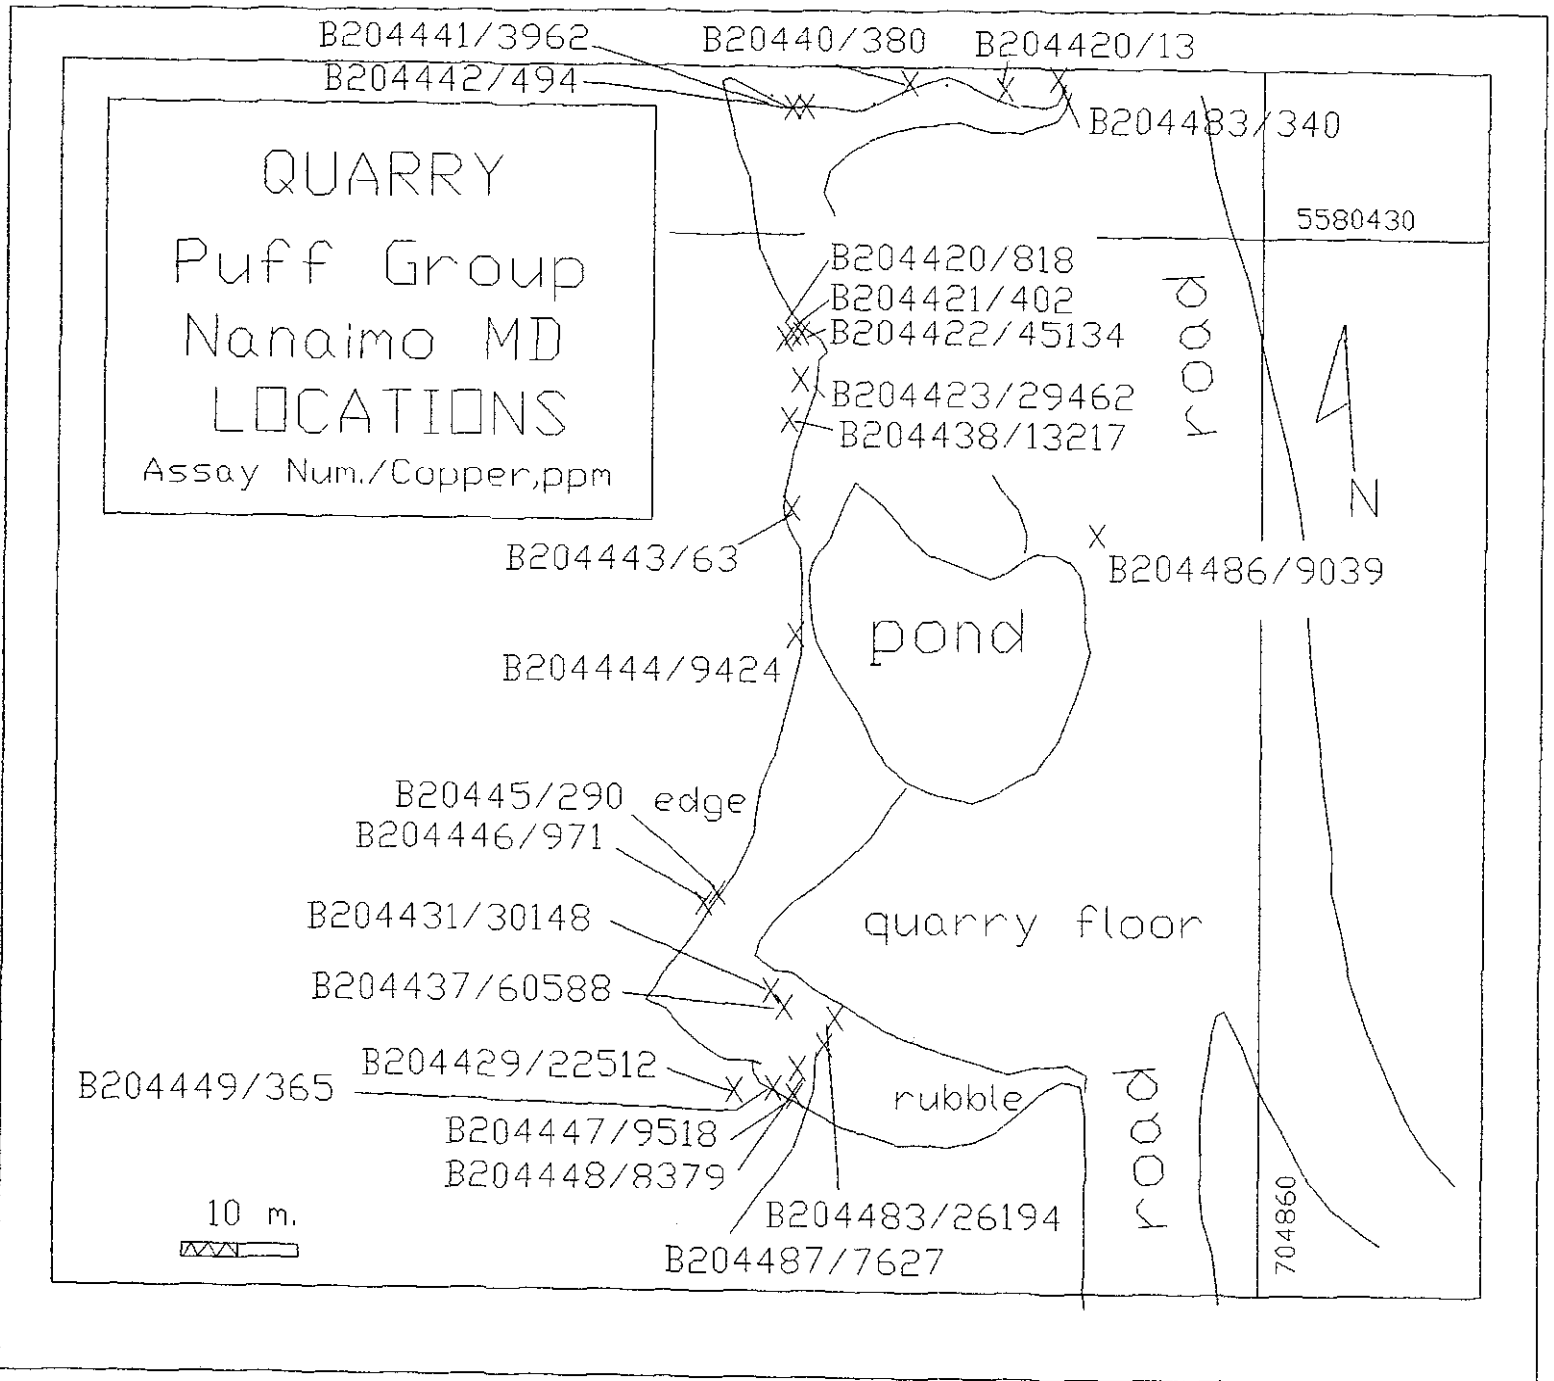 B204441/3962
B20440/380
B204420/13
B204442/494
B204483/340
QUARRY
Puff Group
Nanaimo MD
LOCATIONS
Assay Num./Copper,ppm
5580430
B204420/818
B204421/402
B204422/45134
B204423/29462
B204438/13217
road
N
B204443/63
B204486/9039
pond
B204444/9424
B20445/290
edge
B204446/971
B204431/30148
quarry floor
B204437/60588
B204429/22512
B204449/365
rubble
road
B204447/9518
B204448/8379
B204483/26194
B204487/7627
10 m.
704860